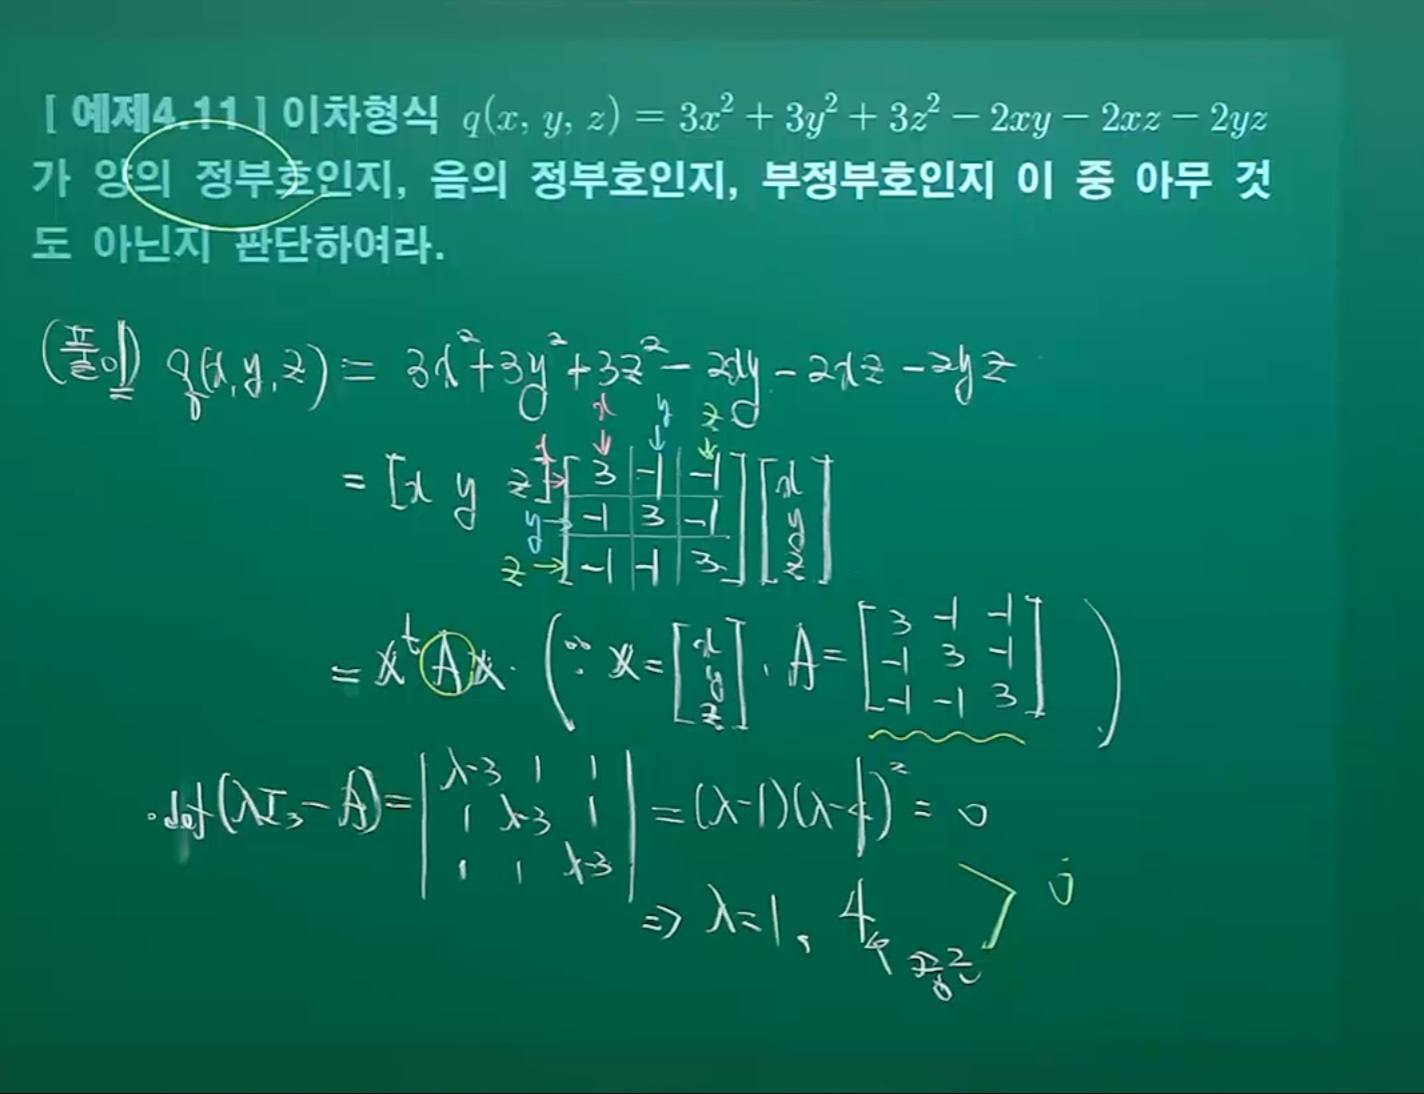 [ 예제4.11 ] 이차형식 q(x, y, z) = 3x² + 3y² + 3z² − 2xy − 2xz − 2yz
가 양의 정부호인지, 음의 정부호인지, 부정부호인지 이 중 아무 것
도 아닌지 판단하여라.
(풀이) q(x, y, z) = 3x² + 3y² + 3z² − 2xy − 2xz − 2yz
x y z
= [x y z] x [3 −1 −1] [x]
y [−1 3 −1] [y]
z [−1 −1 3] [z]
= xᵗAx. (∵ x = [x y z], A = [3 −1 −1
−1 3 −1
−1 −1 3])
det(λI₃ − A) = |λ−3 1 1
1 λ−3 1
1 1 λ−3| = (λ−1)(λ−4)² = 0
⇒ λ = 1, 4 > 0
중근